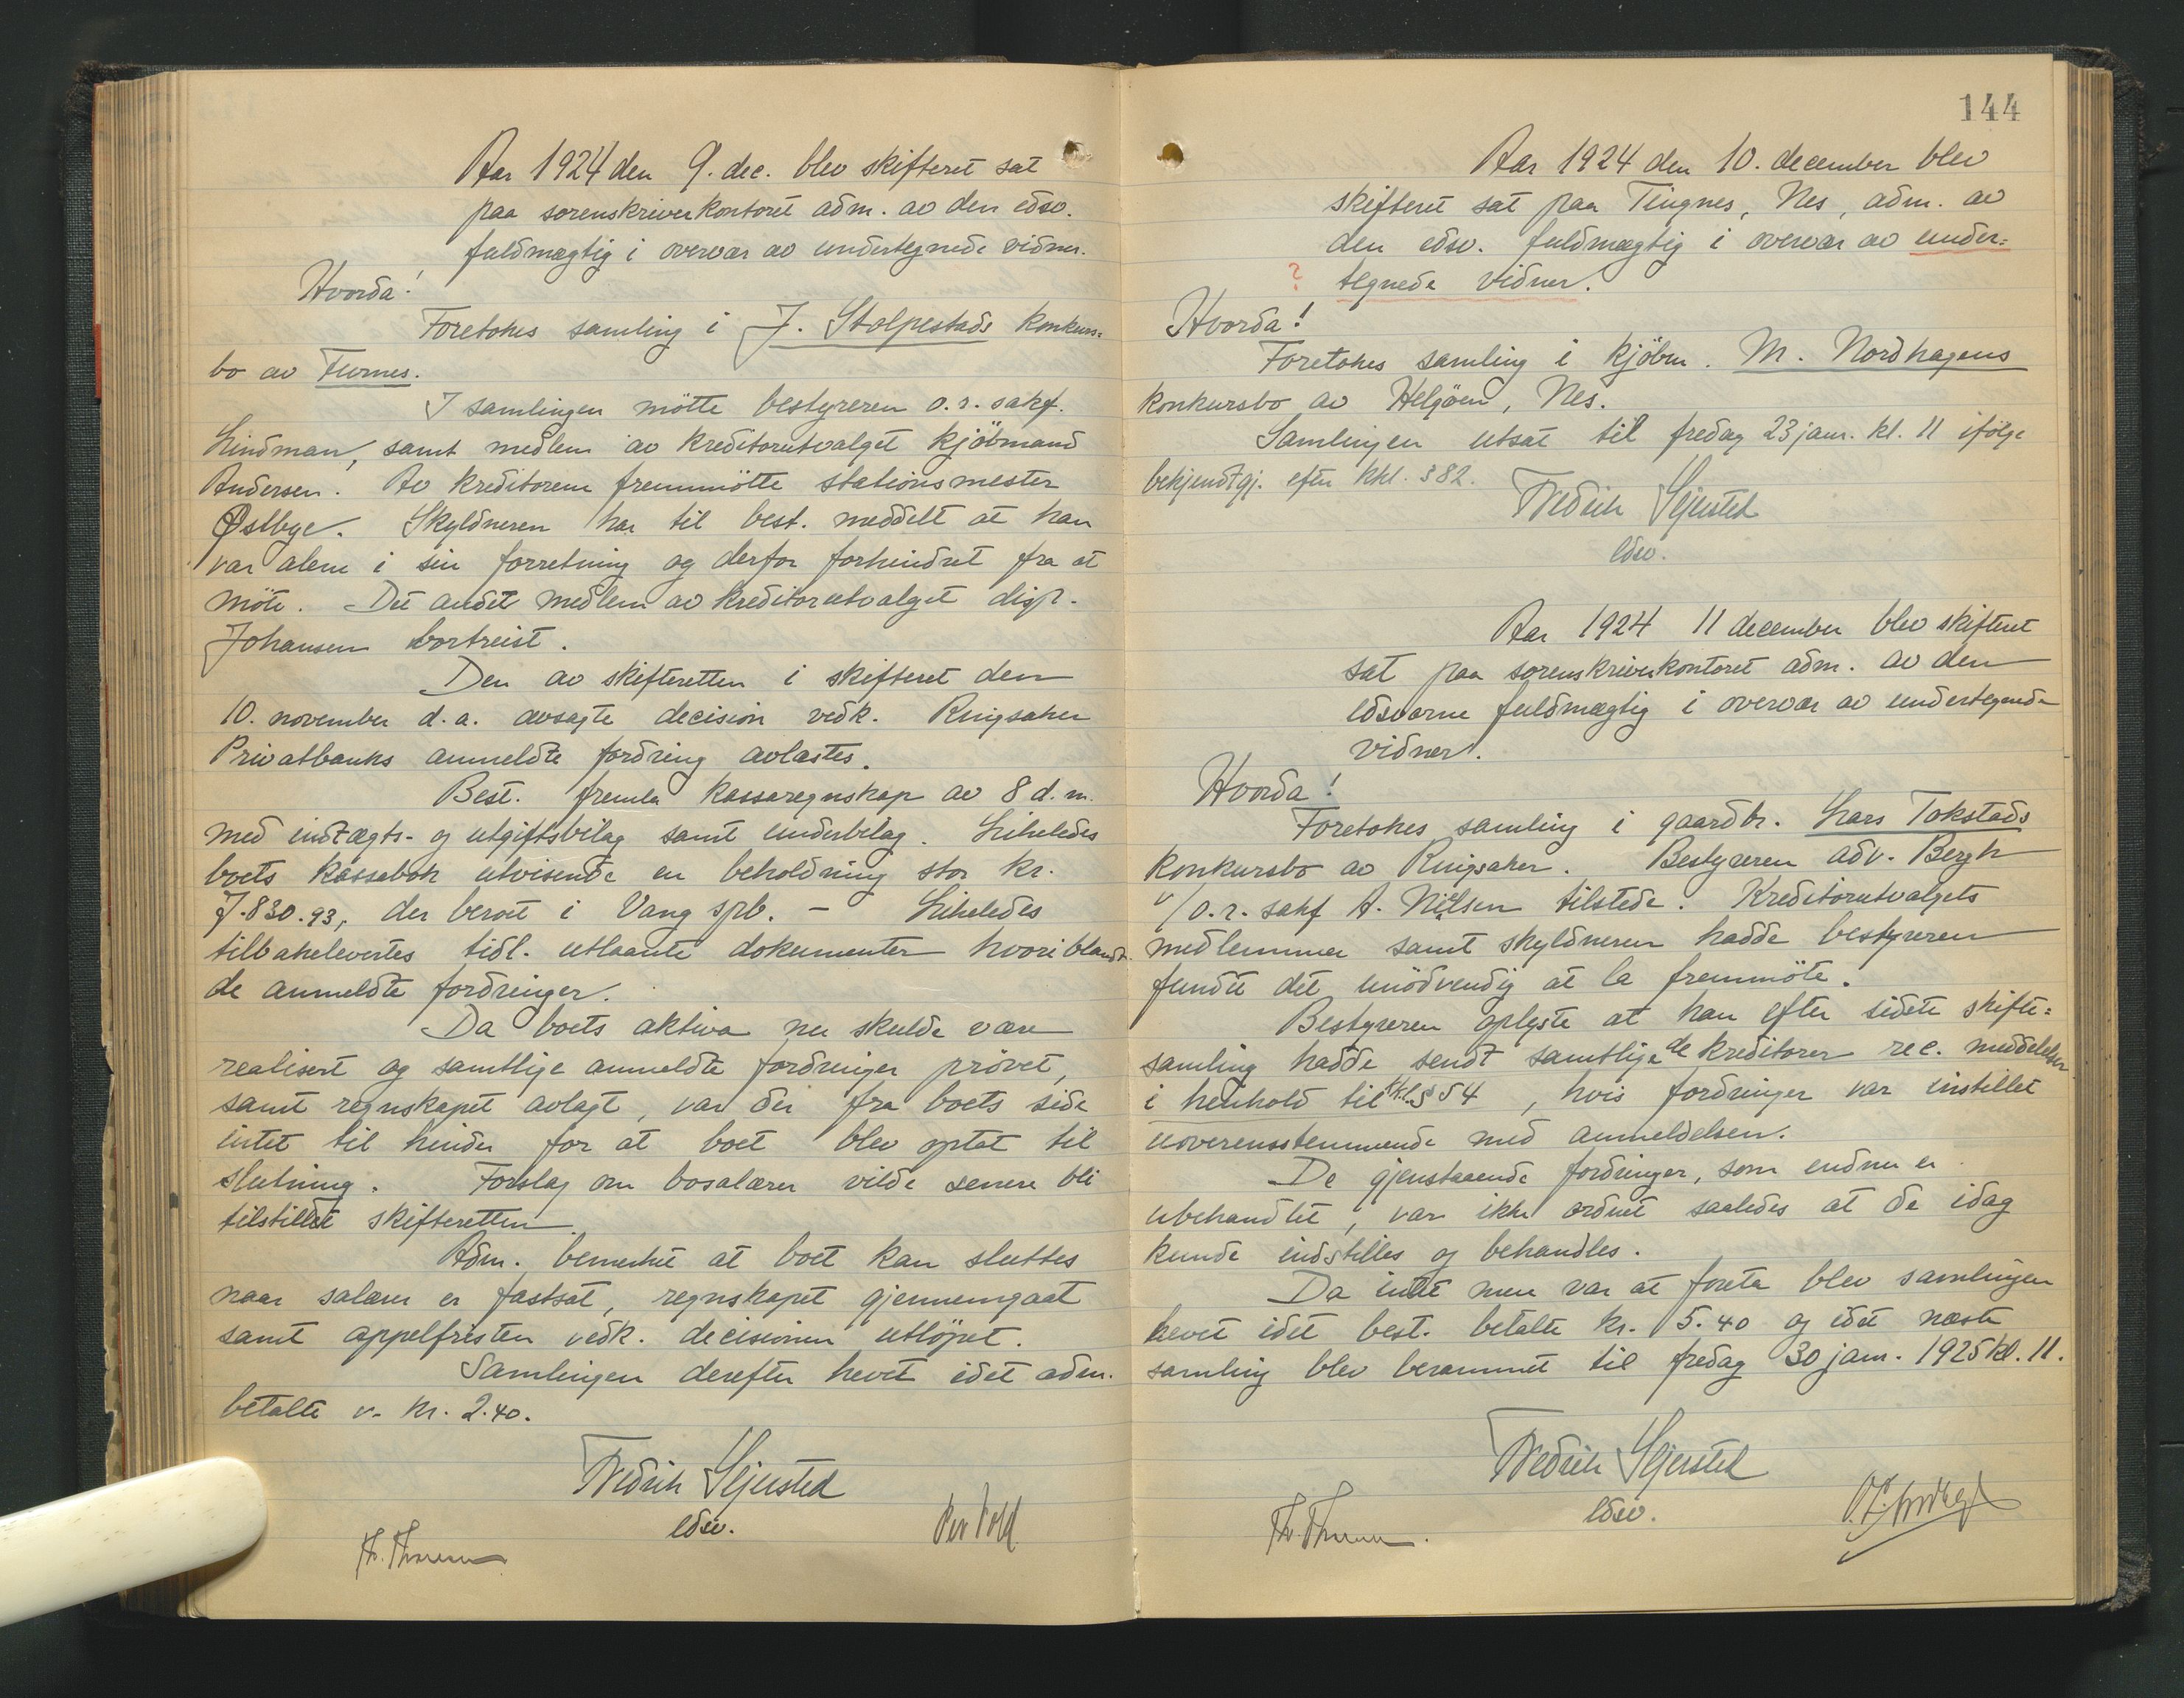 Aar 1924 den 9. dec. blev skifteret sat
paa sorenskriverkontoret adm. av den edsv.
fuldmægtig i overvær av undertegnede vidner.
Hvorda!
Foretokes samling i J. Stolpestads konkurs-
bo av Furnes.
I samlingen mötte bestyreren o.r. sakf.
Lindman, samt medlem av kreditorutvalget kjöbmand
Andersen. Av kreditorene fremmötte stationsmester
Østbye. Skyldneren har til best. meddelt at han
var alene i sin forretning og derfor forhindret fra at
möte. Det andet medlem av kreditorutvalget disp.
Johansen bortreist.
Den av skifteretten i skifteret den
10. november d.a. avsagte decision vedk. Ringsaker
Privatbanks anmeldte fordring avlastes.
Best. fremla kassaregnskap av 8 d.m.
med indtægts- og utgiftsbilag samt underbilag. Likeledes
boets kassebok utvisende en beholdning stor kr.
7.830.93, der beroet i Vang spb. - Likeledes
tilbakelevertes tidl. utlaante dokumenter hvoriblandt
de anmeldte fordringer.
Da boets aktiva nu skulde være
realisert og samtlige anmeldte fordringer prövet,
samt regnskapet avlagt, var der fra boets side
intet til hinder for at boet blev optat til
slutning. Forslag om bosalærer vilde senere bli
tilstillet skifteretten.
Adm. bemerket at boet kan sluttes
naar salærer er fastsat, regnskapet gjennemgaat
samt appelfristen vedk. decisionen utlöpet.
Samlingen derefter hevet idet adm.
betalte v. kr. 2.40.
Fredrik Gjersted
edsv.
Per Vold
Th. Thoresen
144
Aar 1924 den 10. december blev
skifteret sat paa Tingnes, Nes, adm. av
den edsv. fuldmægtig i overvær av under=
? tegnede vidner.
Hvorda!
Foretokes samling i kjöbm. M. Nordhagens
konkursbo av Helgöen, Nes.
Samlingen utsat til fredag 23 jan. kl. 11 ifölge
bekjendtgj. efter kkl. § 82.
Fredrik Gjersted
edsv.
Aar 1924 11 december blev skifteret
sat paa sorenskriverkontoret adm. av den
edsvorne fuldmægtig i overvær av undertegnede
vidner.
Hvorda!
Foretokes samling i gaardbr. Lars Tokstads
konkursbo av Ringsaker. Bestyreren adv. Bergh
v/o.r. sakf A. Nilsen tilstede. Kreditorutvalgets
medlemmer samt skyldneren hadde bestyreren
fundet det unödvendig at la fremmöte.
Bestyreren oplyste at han efter sidste skifte=
samling hadde sendt samtlige de kreditorer rec. meddelelser
i henhold til kkl. § 54, hvis fordringer var instillet
uoverensstemmende med anmeldelsen.
De gjenstaaende fordringer, som endnu er
ubehandlet, var ikke ordnet saaledes at de idag
kunde indstilles og behandles.
Da intet mere var at foreta blev samlingen
hevet idet best. betalte kr. 5.40 og idet næste
samling blev berammet til fredag 30 jan. 1925 kl. 11.
Fredrik Gjersted
edsv.
Th. Thoresen.